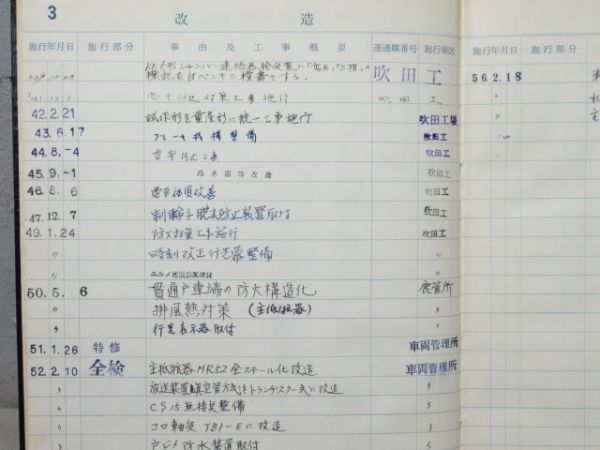 3 改造
施行年月日 施行部分 事由及工事概要 達通牒番号 施行場区 施行年月日
標記を白ペンキで楷書でする。 吹田工 56.2.18
吹田工
42.2.21 試作形を量産形に統一工事施行 吹田工場
43.6.17 ブレーキ 整備 吹田工
44.8.-4 吹田工
45.9.-1 冷水器等改造 吹田工
46.8.6 電車体質改善 吹田工
47.12.7 制輪子脱出防止装置取付 吹田工
49.1.24 防火対策工事施行 吹田工
〃 時刻改正行先幕整備 〃
50.5.6 貫通戸車端の防火構造化 鹿管所
〃 排風熱対策(主抵抗器) 〃
〃 行先表示器取付 〃
51.1.26 特修 車両管理所
52.2.10 全検 主抵抗器MR52全スチール化改造 車両管理所
〃 放送装置真空管方式をトランヂスター式に改造 〃
〃 CS15無接点整備 〃
〃 コロ軸受 TB1-Eに改造 〃
〃 防水装置取付 〃